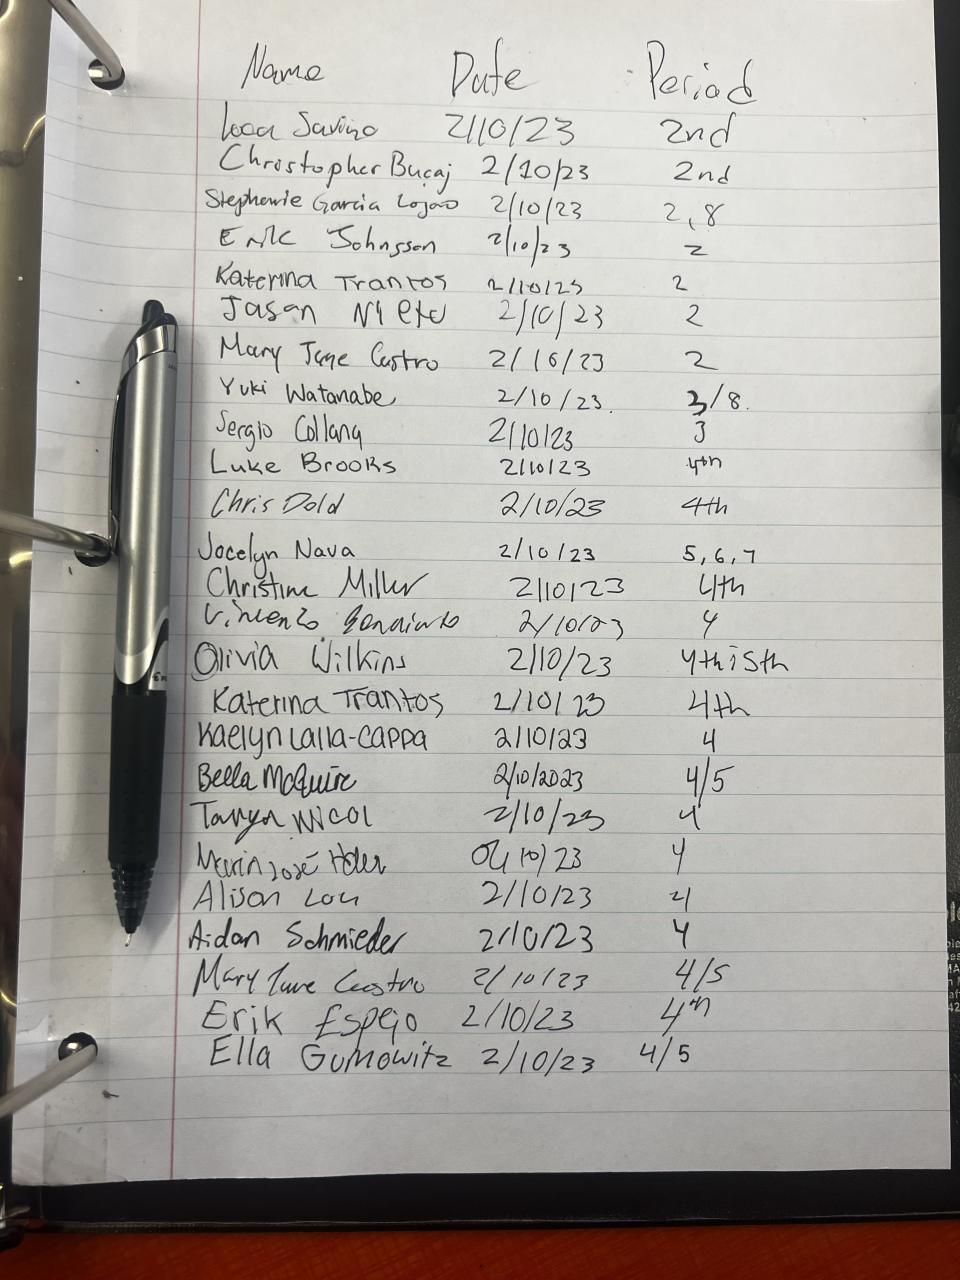 Name Date Period
Luca Savino 2/10/23 2nd
Christopher Bucaj 2/10/23 2nd
Stephanie Garcia Lojano 2/10/23 2, 8
Erik Johnsson 2/10/23 2
Katerina Trantos 2/10/23 2
Jason Nieto 2/10/23 2
Mary Jane Castro 2/10/23 2
Yuki Watanabe 2/10/23. 3/8.
Sergio Collang 2/10/23 3
Luke Brooks 2/10/23 4th
Chris Dold 2/10/23 4th
Jocelyn Nava 2/10/23 5, 6, 7
Christine Miller 2/10/23 4th
Vincenzo 2/10/23 4
Olivia Wilkins 2/10/23 4th i 5th
Katerina Trantos 2/10/23 4th
Kaelyn Lalla-Cappa 2/10/23 4
Bella McGuire 2/10/2023 4/5
Taryn Nicol 2/10/23 4
José 23 4
Alison Lou 2/10/23 4
Aidan Schmieder 2/10/23 4
Mary Jane Castro 2/10/23 4/5
Erik Espejo 2/10/23 4th
Ella Gumowitz 2/10/23 4/5